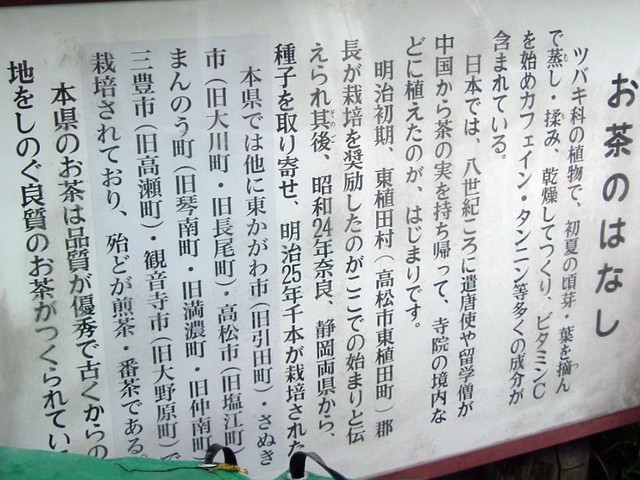 お茶のはなし
ツバキ科の植物で、初夏の頃芽・葉を摘ん
で蒸し・揉み、乾燥してつくり、ビタミンC
を始めカフェイン・タンニン等多くの成分が
含まれている。
日本では、八世紀ころに遣唐使や留学僧が
中国から茶の実を持ち帰って、寺院の境内な
どに植えたのが、はじまりです。
明治初期、東植田村（高松市東植田町）郡
長が栽培を奨励したのがここでの始まりと伝
えられ其後、昭和24年奈良、静岡両県から、
種子を取り寄せ、明治25年千本が栽培された
本県では他に東かがわ市（旧引田町）・さぬき
市（旧大川町・旧長尾町）・高松市（旧塩江町）
まんのう町（旧琴南町・旧満濃町・旧仲南町
三豊市（旧高瀬町）・観音寺市（旧大野原町）で
栽培されており、殆どが煎茶・番茶である。
本県のお茶は品質が優秀で古くからの
地をしのぐ良質のお茶がつくられてい